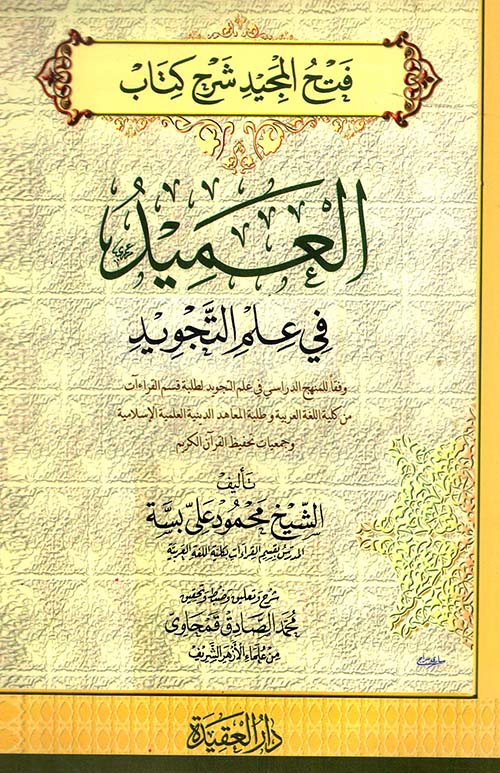 فَتْحُ المَجِيدِ شَرْحُ كِتَابِ
العَمِيدُ
فِي عِلْمِ التَّجْوِيدِ
وفقاً للمنهج الدراسي في علم التجويد لطلبة قسم القراءات
من كلية اللغة العربية وطلبة المعاهد الدينية العلمية الإسلامية
وجمعيات تحفيظ القرآن الكريم
تأليف
الشيخ محمود علي بسة
المدرس بقسم القراءات بكلية اللغة العربية
شرح وتعليق وضبط وتحقيق
محمد الصادق قمحاوي
من علماء الأزهر الشريف
دار العقيدة